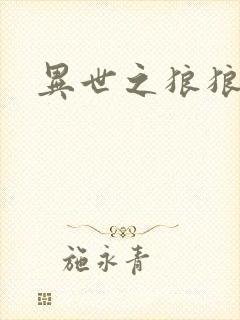 異世之狼狼
施永青